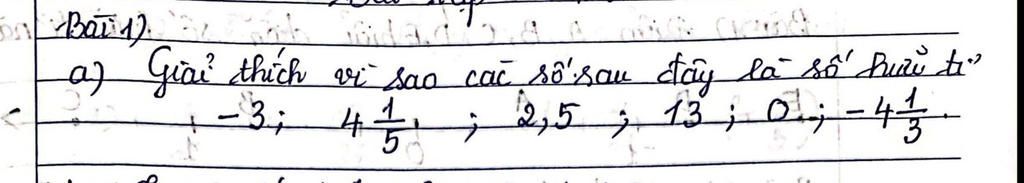 Bài 1)
a) Giải thích vì sao các số sau đây là số hữu tỉ
-3; 4 1/5 ; 2,5 ; 13 ; 0 ; -4 1/3 .